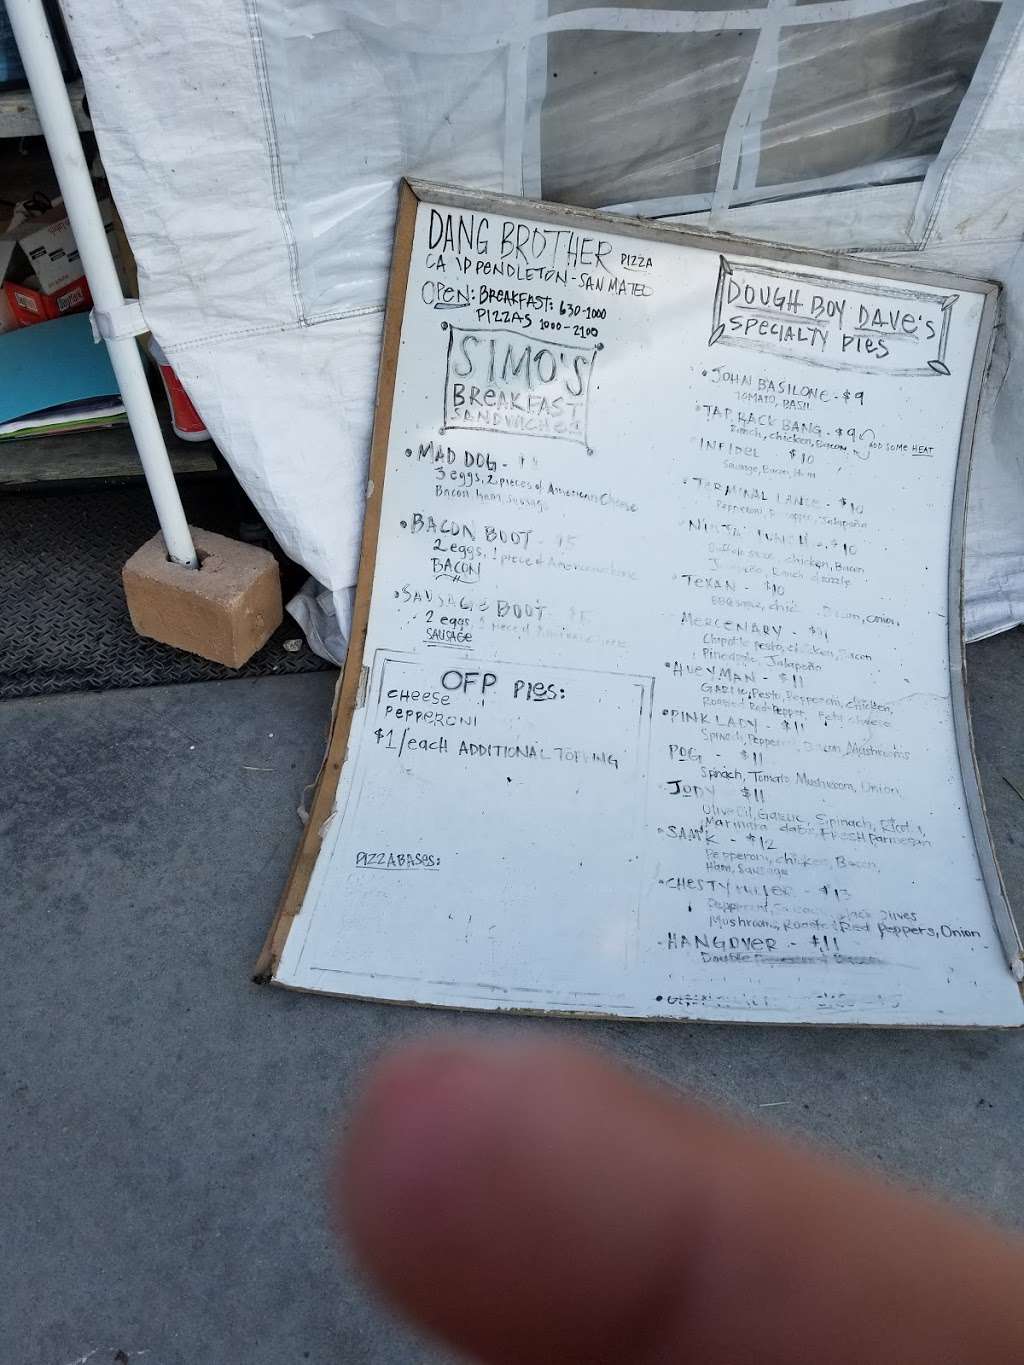 DANG BROTHER PIZZA
CAMP PENDLETON - SAN MATEO
OPEN: BREAKFAST: 630-1000
PIZZAS 1000-2100
SIMO'S
BREAKFAST
SANDWICHES
• MAD DOG -
3 eggs, 2 pieces of American Cheese
Bacon, ham, sausage
• BACON BOOT - $5
2 eggs, 1 piece of American cheese
BACON
• SAUSAGE BOOT - $5
2 eggs, 1 piece of American cheese
SAUSAGE
OFP PIES:
CHEESE
PEPPERONI
$1/each ADDITIONAL TOPPING
PIZZA BASES:
DOUGH BOY DAVE's
SPECIALTY PIES
• JOHN BASILONE - $9
TOMATO, BASIL
• TAP RACK BANG - $9
Ranch, chicken, Bacon
ADD SOME HEAT
• INFIDEL $10
Sausage, Bacon, Ham
• TERMINAL LANCE - $10
Pepperoni, Jalapeño
• NINJA PUNCH - $10
Buffalo sauce, chicken, Bacon
Jalapeño, Ranch drizzle
• TEXAN - $10
BBQ sauce, Bacon, onion,
MERCENARY - $11
Chipotle pesto, chicken, Bacon
Pineapple, Jalapeño
• HUEY MAN - $11
GARLIC, Pesto, Pepperoni, chicken,
Roasted Red Pepper, Feta cheese
• PINK LADY - $11
Spinach, Pepperoni, Bacon, Mushrooms
POG - $11
Spinach, Tomato, Mushroom, Onion,
JODY - $11
Olive Oil, GARLIC, Spinach, Ricotta,
Marinara dabs, Fresh parmesan
• SAM'K - $12
Pepperoni, chicken, Bacon,
Ham, Sausage
• CHESTY PULLER - $13
Pepperoni, Sausage, Black olives
Mushrooms, Roasted Red Peppers, Onion
• HANGOVER - $11
Double